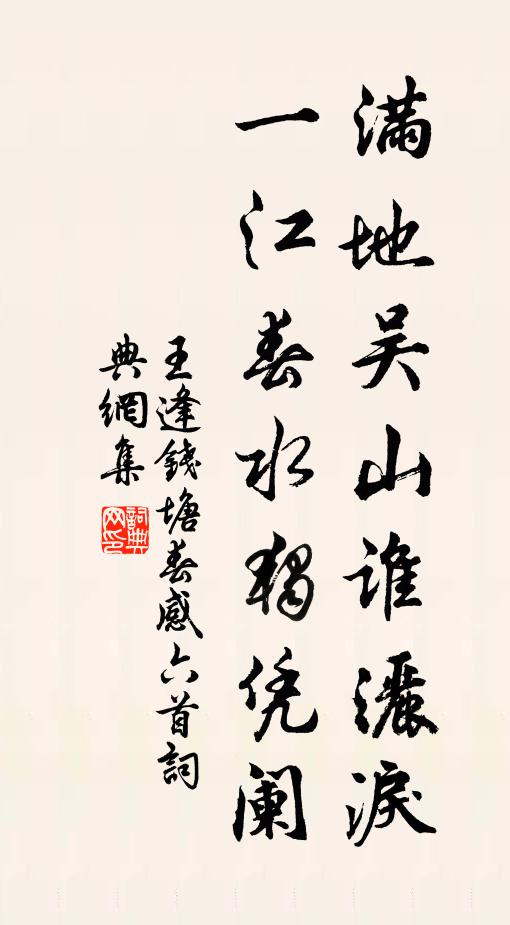 满地吴山谁灑淚
一江春水獨凭阑
王逢錢塘春感六首詞
典網集
詞典网印